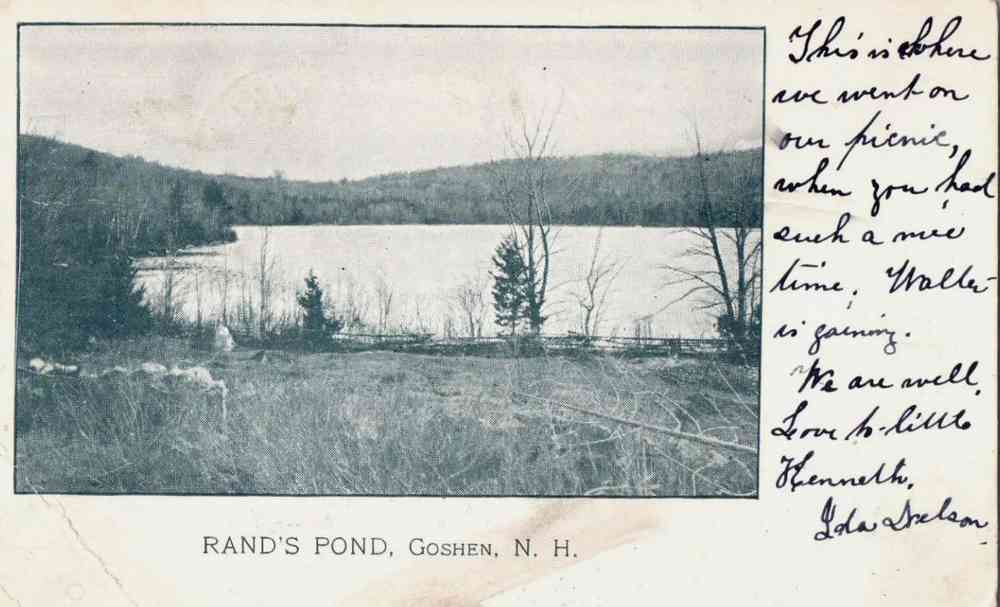 This is where
we went on
our picnic,
when you had
such a nice
time. Walter
is gaining.
We are well.
Love to little
Kenneth.
Ida
RAND'S POND, GOSHEN, N. H.